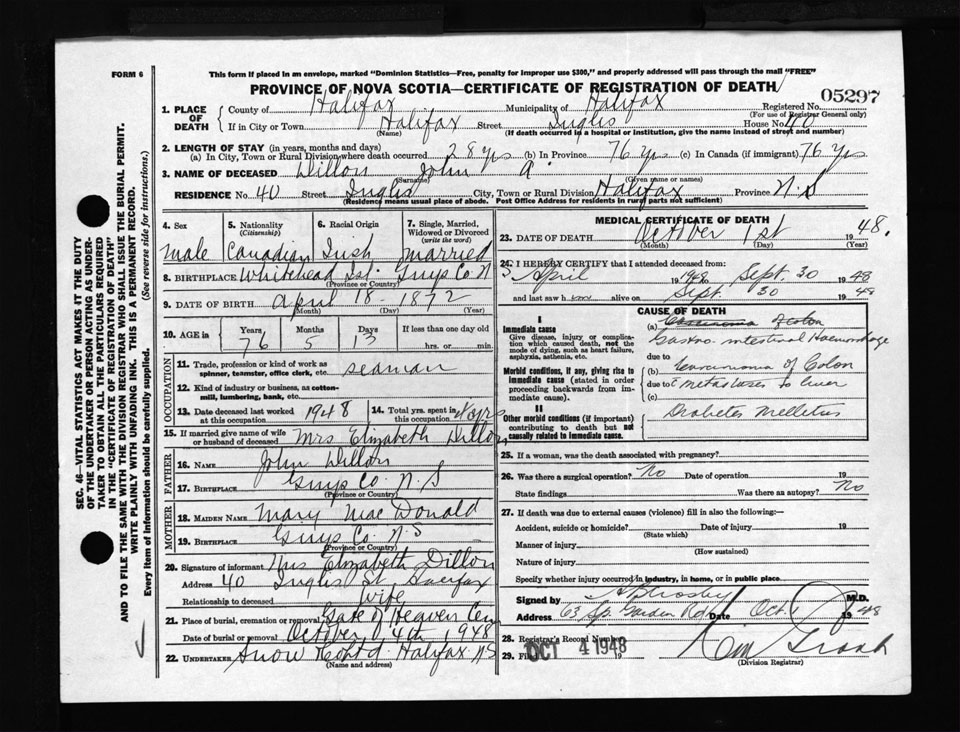 FORM 6
This form if placed in an envelope, marked "Dominion Statistics—Free, penalty for improper use $300," and properly addressed will pass through the mail "FREE"
PROVINCE OF NOVA SCOTIA—CERTIFICATE OF REGISTRATION OF DEATH
05297
1. PLACE OF DEATH County of Halifax Municipality of Halifax Registered No.
(For use of Registrar General only)
If in City or Town Halifax Street Inglis House No. 40
(Name) (If death occurred in a hospital or institution, give the name instead of street and number)
2. LENGTH OF STAY (in years, months and days)
(a) In City, Town or Rural Division where death occurred 28 yrs (b) In Province 76 Yrs (c) In Canada (if immigrant) 76 Yrs
3. NAME OF DECEASED Dillon John A.
(Surname) (Given name or names)
RESIDENCE No. 40 Street Inglis City, Town or Rural Division Halifax Province N.S
(Residence means usual place of abode. Post Office Address for residents in rural parts not sufficient)
4. Sex 5. Nationality (Citizenship) 6. Racial Origin 7. Single, Married, Widowed or Divorced (write the word)
Male Canadian Irish married
8. BIRTHPLACE Whitehead Isl. Guys Co. N
(Province or Country)
9. DATE OF BIRTH April 18 - 1872
(Month) (Day) (Year)
10. AGE in Years Months Days If less than one day old
76 5 13 hrs. or min.
OCCUPATION
11. Trade, profession or kind of work as spinner, teamster, office clerk, etc. seaman
12. Kind of industry or business, as cotton-mill, lumbering, bank, etc.
13. Date deceased last worked at this occupation 1948 14. Total yrs. spent in this occupation
15. If married give name of wife or husband of deceased Mrs Elizabeth Dillon
FATHER
16. NAME John Dillon
17. BIRTHPLACE Guys Co. N.S
(Province or Country)
MOTHER
18. MAIDEN NAME Mary MacDonald
19. BIRTHPLACE Guys Co. N.S
(Province or Country)
20. Signature of informant Mrs Elizabeth Dillon
Address 40 Inglis St, Halifax
Relationship to deceased wife
21. Place of burial, cremation or removal Gate of Heaven Cem
Date of burial or removal October 4th 1948
22. UNDERTAKER Snow & Co Ltd. Halifax NS
(Name and address)
MEDICAL CERTIFICATE OF DEATH
23. DATE OF DEATH October 1st 1948.
(Month) (Day) (Year)
24. I HEREBY CERTIFY that I attended deceased from:
April 1948 Sept. 30 1948
and last saw him alive on Sept. 30 1948
CAUSE OF DEATH
I
Immediate cause
Give disease, injury or complication which caused death, not the mode of dying, such as heart failure, asphyxia, asthenia, etc.
(a) Carcinoma of colon
Gastro-intestinal Haemorrhage
due to
Morbid conditions, if any, giving rise to immediate cause (stated in order proceeding backwards from immediate cause).
(b) Carcinoma of Colon
due to c metastases to liver
(c)
II
Other morbid conditions (if important) contributing to death but not causally related to immediate cause.
Diabetes Mellitus
25. If a woman, was the death associated with pregnancy?
26. Was there a surgical operation? No Date of operation 19
State findings Was there an autopsy? No
27. If death was due to external causes (violence) fill in also the following:—
Accident, suicide or homicide? Date of injury 19
(State which)
Manner of injury
(How sustained)
Nature of injury
Specify whether injury occurred in industry, in home, or in public place.
Signed by M.D.
Address 63 Sp. Garden Rd. Date Oct. 1948
28. Registrar's Record Number
29. Filed OCT 4 1948 19
(Division Registrar)
SEC. 46—VITAL STATISTICS ACT MAKES IT THE DUTY
OF THE UNDERTAKER OR PERSON ACTING AS UNDER-
TAKER TO OBTAIN ALL THE PARTICULARS REQUIRED
IN THE "CERTIFICATE OF REGISTRATION OF DEATH"
AND TO FILE THE SAME WITH THE DIVISION REGISTRAR WHO SHALL ISSUE THE BURIAL PERMIT.
WRITE PLAINLY WITH UNFADING INK. THIS IS A PERMANENT RECORD.
Every item of Information should be carefully supplied. (See reverse side for instructions.)